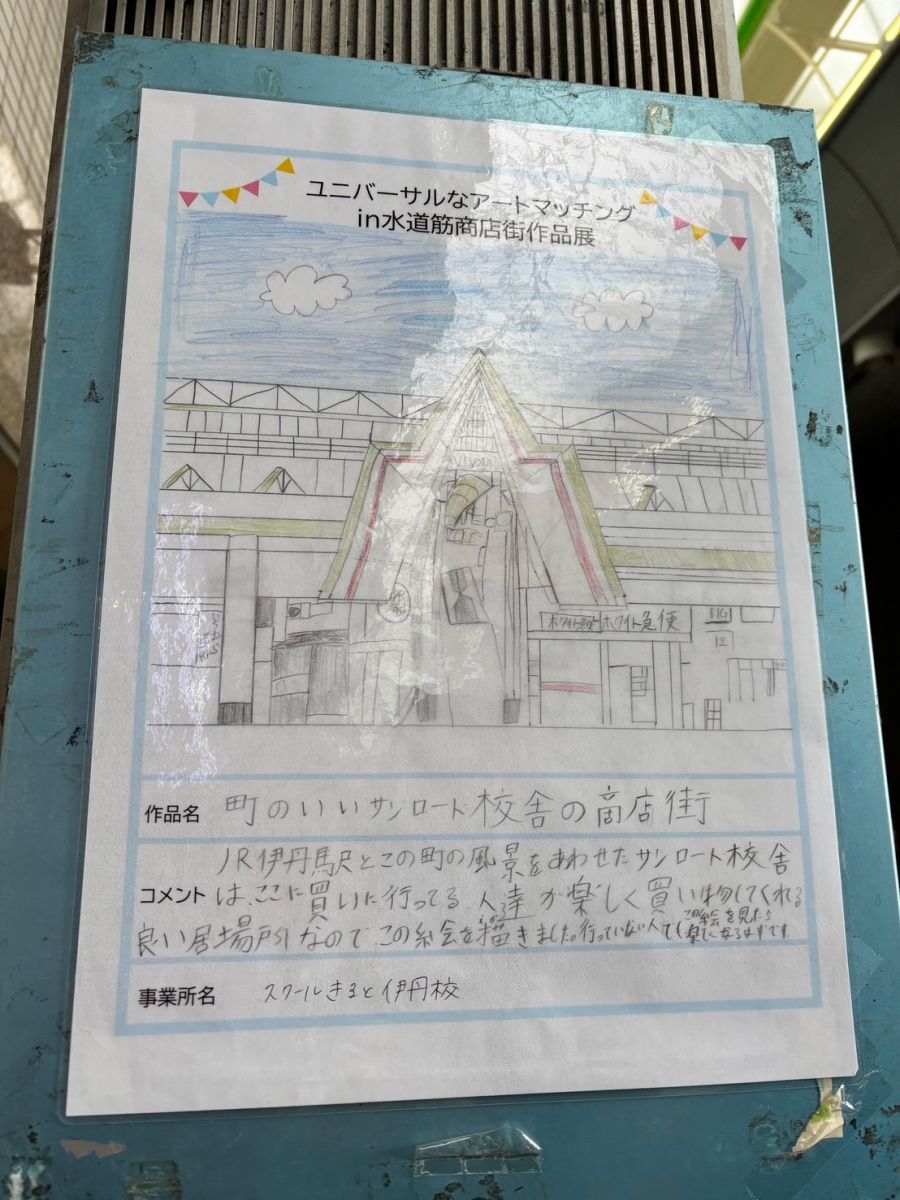 ユニバーサルなアートマッチング
in水道筋商店街作品展
ホワイト急便
BIG
12
作品名 町のいいサンロード校舎の商店街
JR伊丹駅とこの町の風景をあわせたサンロード校舎
コメント は、ここに買いに行ってる人達が楽しく買い物してくれる
良い居場所なので、この絵を描きました。行っていない人でもこの絵を見たら楽しくなるはずです
事業所名 スクールきると伊丹校